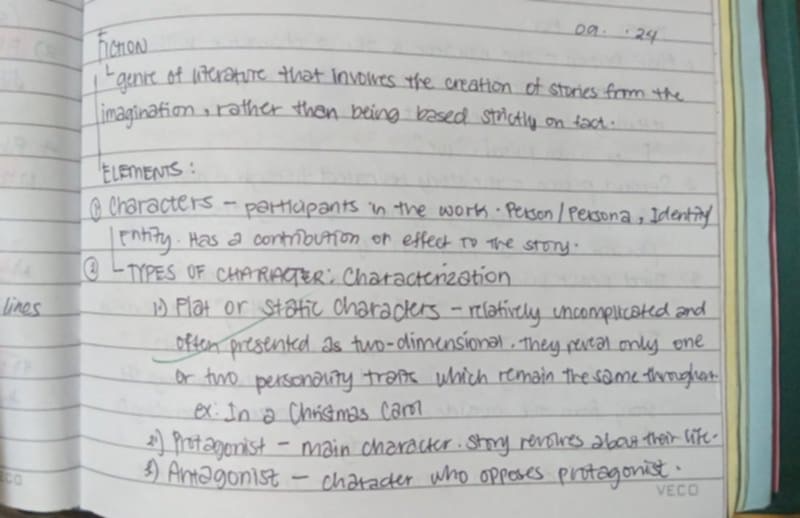 09. .24
FICTION
genre of literature that involves the creation of stories from the
imagination, rather than being based strictly on fact.
ELEMENTS:
① Characters - participants in the work. Person/Persona, Identity
entity. Has a contribution or effect to the story.
② TYPES OF CHARACTER: Characterization
lines
1.) Flat or static characters - relatively uncomplicated and
often presented as two-dimensional. They reveal only one
or two personality traits which remain the same throughout
ex: In a Christmas Carol
2) Protagonist - main character. Story revolves about their life.
3) Antagonist - character who opposes protagonist.
VECO